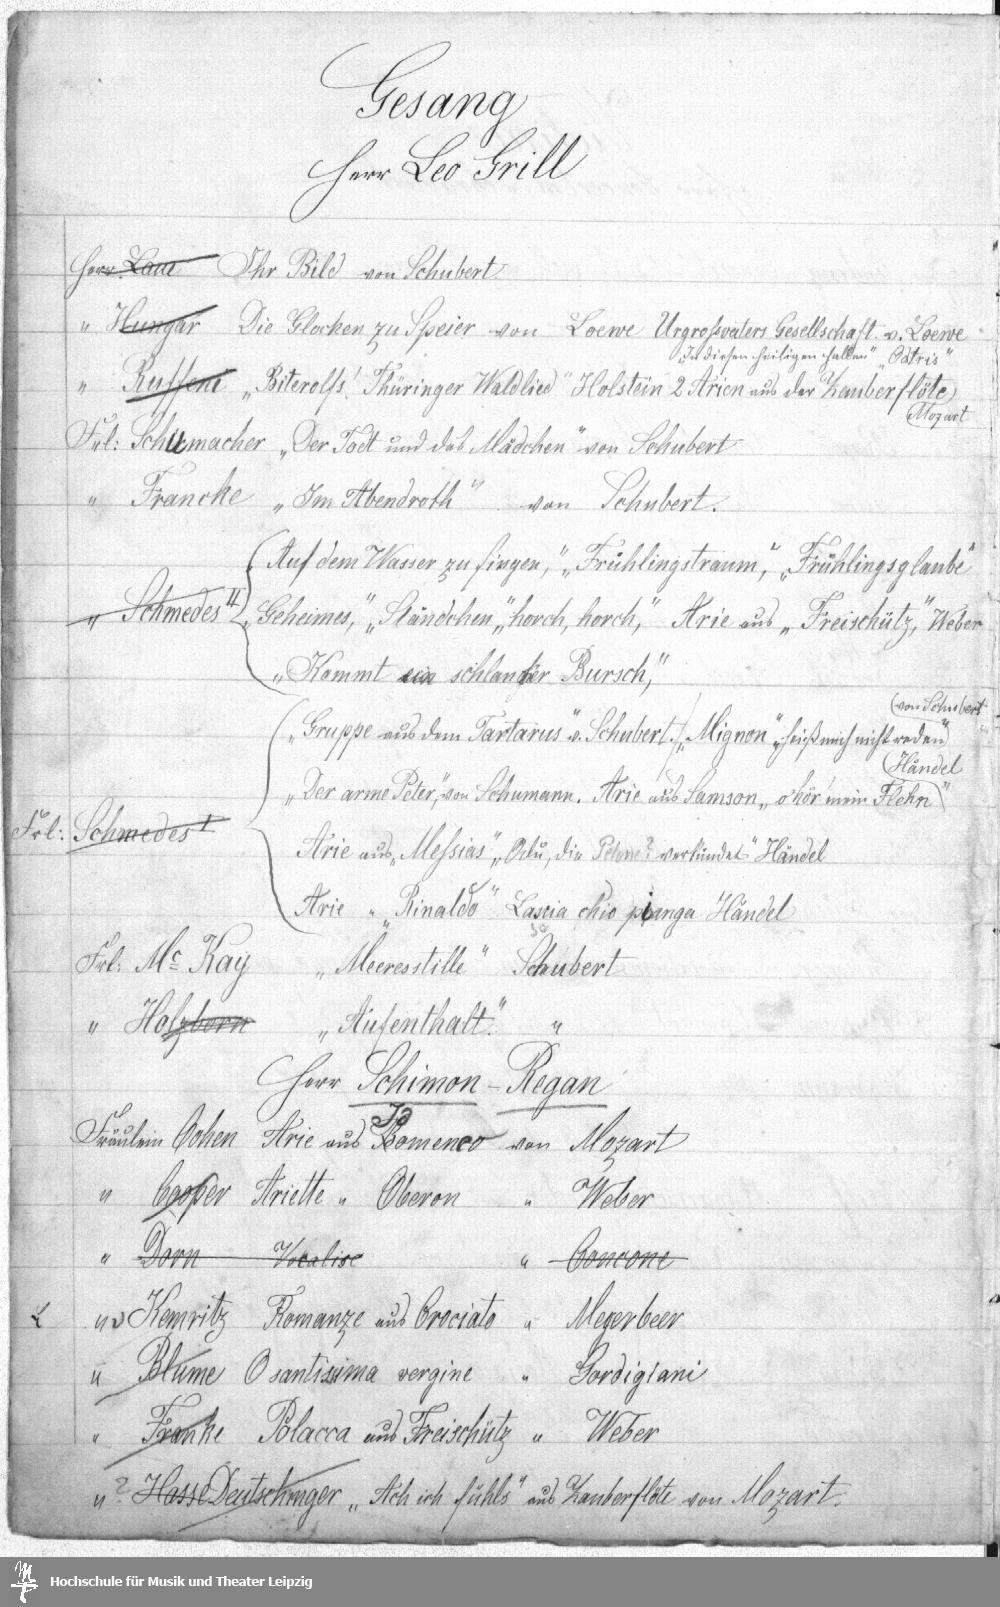 Gesang
Herr Leo Grill
Herr Lane Ihr Bild von Schubert
" Hungar Die Glocken zu Speier von Loewe Urgroßvaters Gesellschaft v. Loewe
"In diesen heiligen Hallen" "Osiris"
" Ruffeni "Biterolfs" Thüringer Waldlied" Holstein 2 Arien aus der Zauberflöte
Mozart
Frl: Schumacher "Der Todt und das Mädchen" von Schubert
" Francke "Im Abendroth" von Schubert.
"Auf dem Wasser zu singen," "Frühlingstraum," "Frühlingsglaube"
" Schmedes II "Geheimes," "Ständchen" "horch, horch," Arie aus "Freischütz," Weber
"Kommt ein schlanker Bursch,"
(von Schubert
"Gruppe aus dem Tartarus" v. Schubert. "Mignon" "heiß mich nicht reden"
(Händel
"Der arme Peter", von Schumann. Arie aus Samson "o hör mein Flehn"
Frl: Schmedes I
Arie aus "Messias" "O du, die verkündet" Händel
Arie " "Rinaldo" Lascia chio pianga Händel
Frl: Mc Kay "Meeresstille" Schubert
" Holzborn "Aufenthalt." "
Herr Schimon-Regan
Fräulein Cohen Arie aus Idomeneo von Mozart
" Cooper Ariette " Oberon " Weber
" Dorn Vocalise " Concone
" Kemritz Romanze aus Crociato " Meyerbeer
" Blume O santissima vergine " Gordigiani
" Franke Polacca aus Freischütz " Weber
" ? Hasse Deutschinger "Ach ich fühls" aus Zauberflöte von Mozart.
Hochschule für Musik und Theater Leipzig